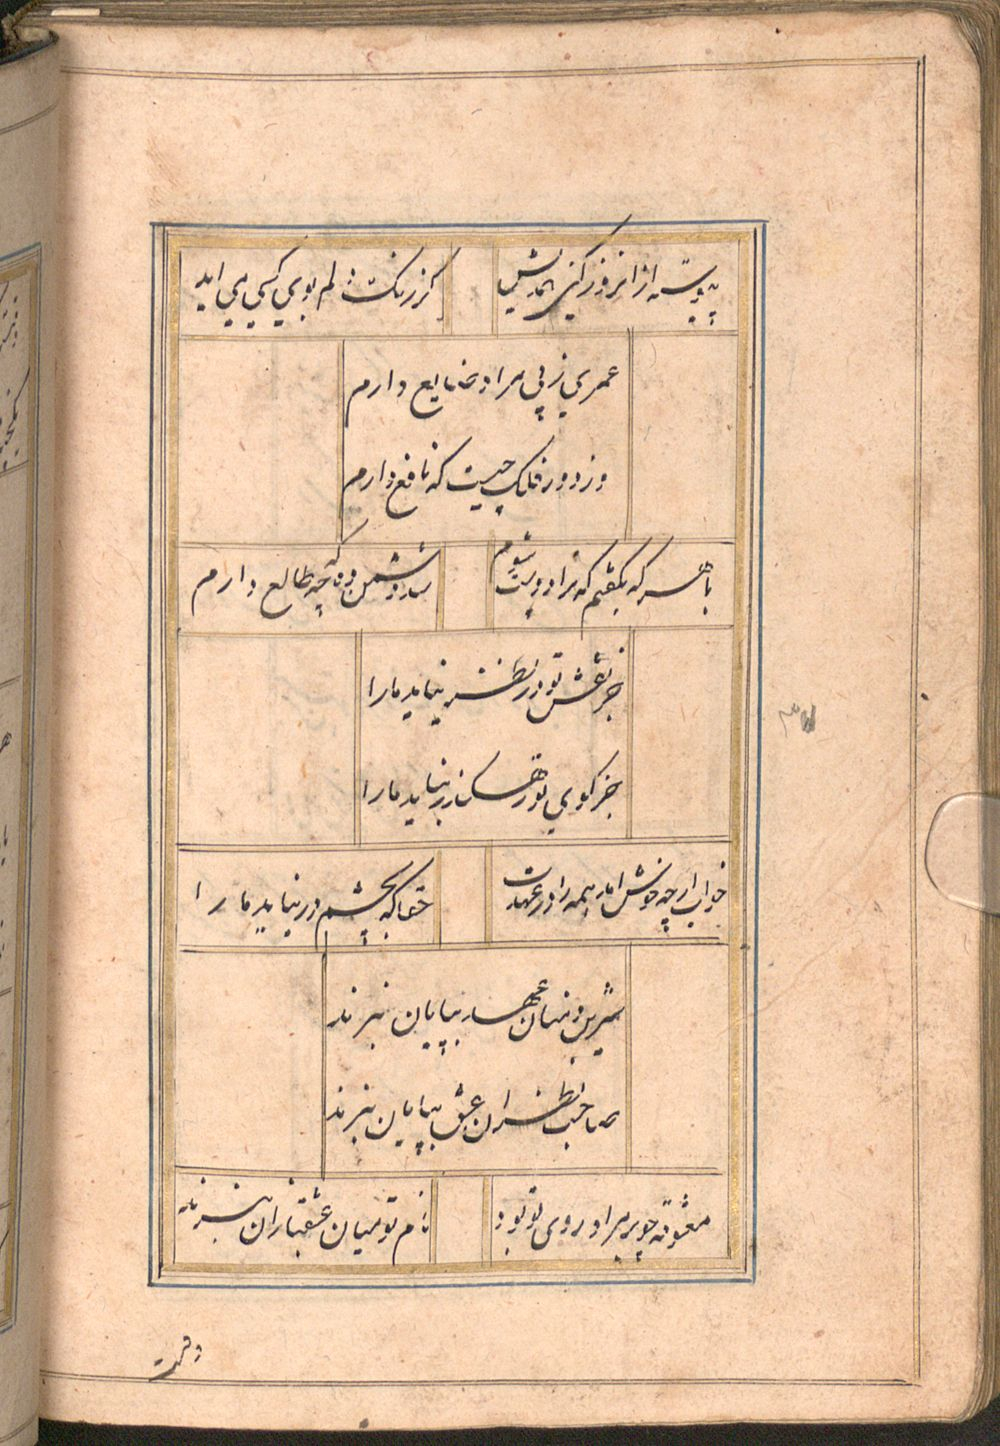 پیوسته ازانروز کنی همدمیش
کز رنگت دلم بوی کسی می اید
عمری ز پی مراد ضایع دارم
وز دور فلک چیست که نافع دارم
با هر که بگفتم که ترا دوست شوم
شد دشمن من وه که چه طالع دارم
جز نقش تو در نظر نیاید مارا
جز کوی تو رهگذر نیاید مارا
خواب ارچه خوش امد همه را در عهدت
حقا که بچشم در نیاید مارا
شیرین دهنان عهد بپایان نبرند
صاحب نظران عشق بپایان نبرند
معشوقه چو بر مراد روی تو بود
نام تو میان عشقبازان نبرند